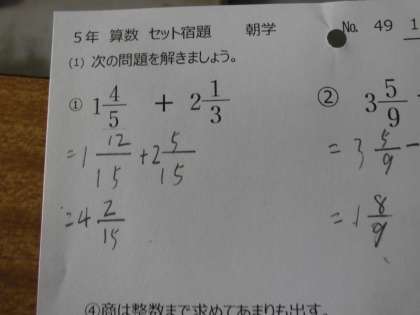 5年 算数 セット宿題 朝学 No. 49 1
(1) 次の問題を解きましょう。
① 1 4/5 + 2 1/3
=1 12/15 +2 5/15
=4 2/15
② 3 5/9 -
= 3 5/9 -
=1 8/9
④商は整数まで求めてあまりも出す。